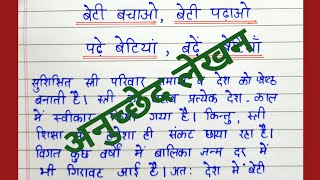 बेटी बचाओ, बेटी पढ़ाओ
पढ़े बेटियां, बढ़ें
अनुच्छेद लेखन
सुशिक्षित स्त्री परिवार व देश को श्रेष्ठ
बनाती है। स्त्री प्रत्येक देश-काल
में स्वीकार गया है। किन्तु, स्त्री
शिक्षा ही संकट छाया रहा है।
विगत कुछ वर्षों में बालिका जन्म दर में
भी गिरावट आई है। अतः देश में बेटी